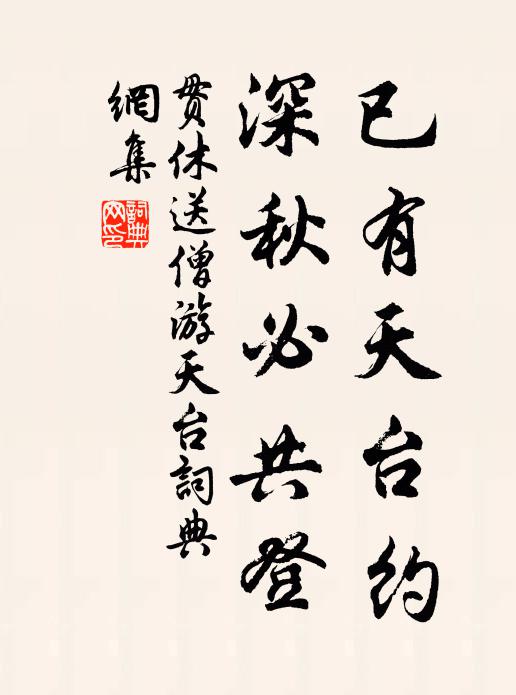 已有天台約
深秋必共登
貫休送僧游天台詞典
網集
詞典
网印